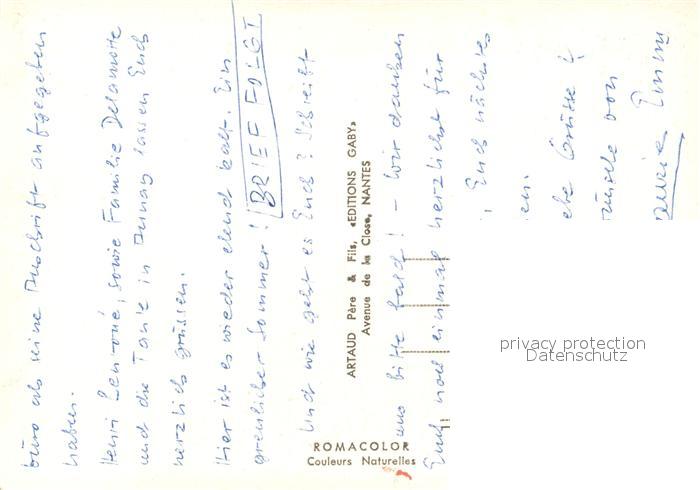 büro als seine Anschrift aufgegeben
haben.
Henri Lenroué, sowie Familie Delamotte
und die Tante in Aunay lassen Euch
herzlich grüssen.
Hier ist es wieder elend kalt. Ein
greulicher Sommer! BRIEF FOLGT
Und wie geht es Euch? Schreibt
uns bitte bald! - Wir danken
Euch noch einmal herzlichst für
Euch nächstes
en.
ebe Grüsse
von
ARTAUD Père & Fils, «EDITIONS GABY»
Avenue de la Close, NANTES
ROMACOLOR
Couleurs Naturelles
privacy protection
Datenschutz